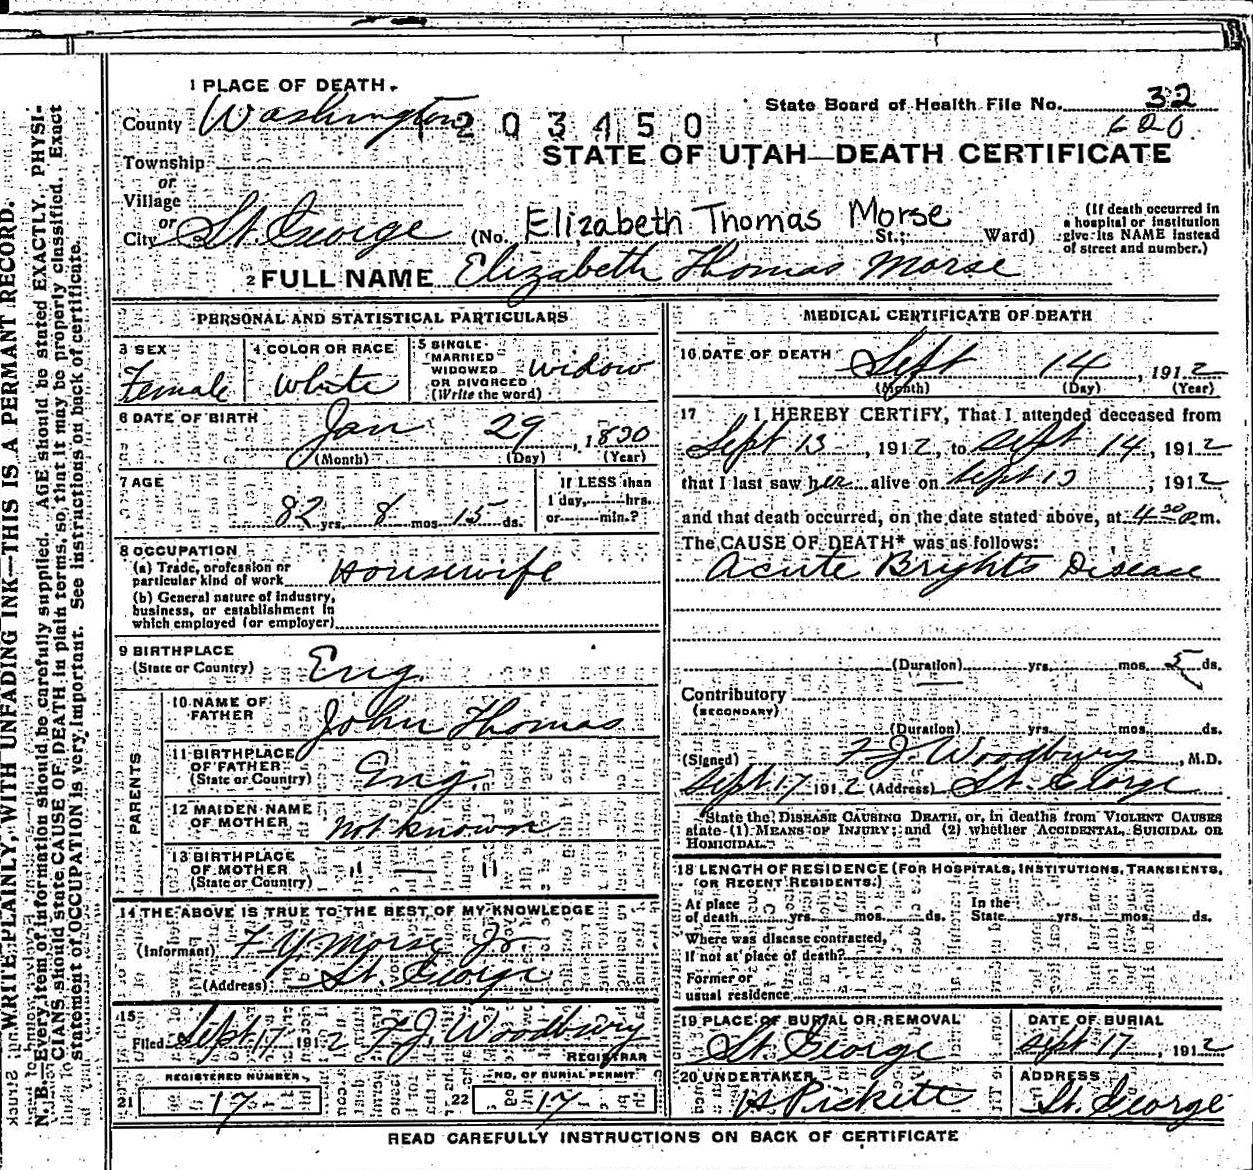 1 PLACE OF DEATH.
County Washington
1203450
State Board of Health File No. 32
600.
STATE OF UTAH—DEATH CERTIFICATE
Township
or
Village
or
City St. George (No. Elizabeth Thomas Morse St.; Ward)
(If death occurred in
a hospital or institution
give its NAME instead
of street and number.)
2 FULL NAME Elizabeth Thomas Morse
PERSONAL AND STATISTICAL PARTICULARS
3 SEX
Female
4 COLOR OR RACE
White
5 SINGLE
MARRIED
WIDOWED
OR DIVORCED
(Write the word)
widow
6 DATE OF BIRTH
Jan 29, 1830
(Month) (Day) (Year)
7 AGE
82 yrs. 8 mos. 15 ds.
If LESS than
1 day, hrs.
or min.?
8 OCCUPATION
(a) Trade, profession or
particular kind of work Housewife
(b) General nature of industry,
business, or establishment in
which employed (or employer)
9 BIRTHPLACE
(State or Country) Eng.
PARENTS
10 NAME OF
FATHER John Thomas
11 BIRTHPLACE
OF FATHER
(State or Country) Eng.
12 MAIDEN NAME
OF MOTHER not known
13 BIRTHPLACE
OF MOTHER
(State or Country) " — "
14 THE ABOVE IS TRUE TO THE BEST OF MY KNOWLEDGE
(Informant) F Y. Morse Jr
(Address) St. George
15
Filed Sept 17 1912 F J. Woodbury
REGISTRAR
REGISTERED NUMBER
21 17
NO. OF BURIAL PERMIT
22 17
MEDICAL CERTIFICATE OF DEATH
16 DATE OF DEATH Sept 14, 1912
(Month) (Day) (Year)
17 I HEREBY CERTIFY, That I attended deceased from
Sept 13, 1912, to Sept 14, 1912
that I last saw her alive on Sept 13, 1912
and that death occurred, on the date stated above, at 4 30 m.
The CAUSE OF DEATH* was as follows:
Acute Brights Disease
(Duration) yrs. mos. 5 ds.
Contributory
(SECONDARY)
(Duration) yrs. mos. ds.
(Signed) F J. Woodbury, M.D.
Sept 17 1912 (Address) St. George
*State the DISEASE CAUSING DEATH, or, in deaths from VIOLENT CAUSES
state (1) MEANS OF INJURY; and (2) whether ACCIDENTAL, SUICIDAL OR
HOMICIDAL.
18 LENGTH OF RESIDENCE (FOR HOSPITALS, INSTITUTIONS, TRANSIENTS,
OR RECENT RESIDENTS.)
At place
of death yrs. mos. ds.
In the
State yrs. mos. ds.
Where was disease contracted,
If not at place of death?
Former or
usual residence
19 PLACE OF BURIAL OR REMOVAL
St. George
DATE OF BURIAL
Sept 17, 1912
20 UNDERTAKER
Pickett
ADDRESS
St. George
READ CAREFULLY INSTRUCTIONS ON BACK OF CERTIFICATE
WRITE PLAINLY, WITH UNFADING INK—THIS IS A PERMANT RECORD.
N. B.—Every item of information should be carefully supplied. AGE should be stated EXACTLY. PHYSI-
CIANS should state CAUSE OF DEATH in plain terms, so that it may be properly classified. Exact
statement of OCCUPATION is very important. See instructions on back of certificate.